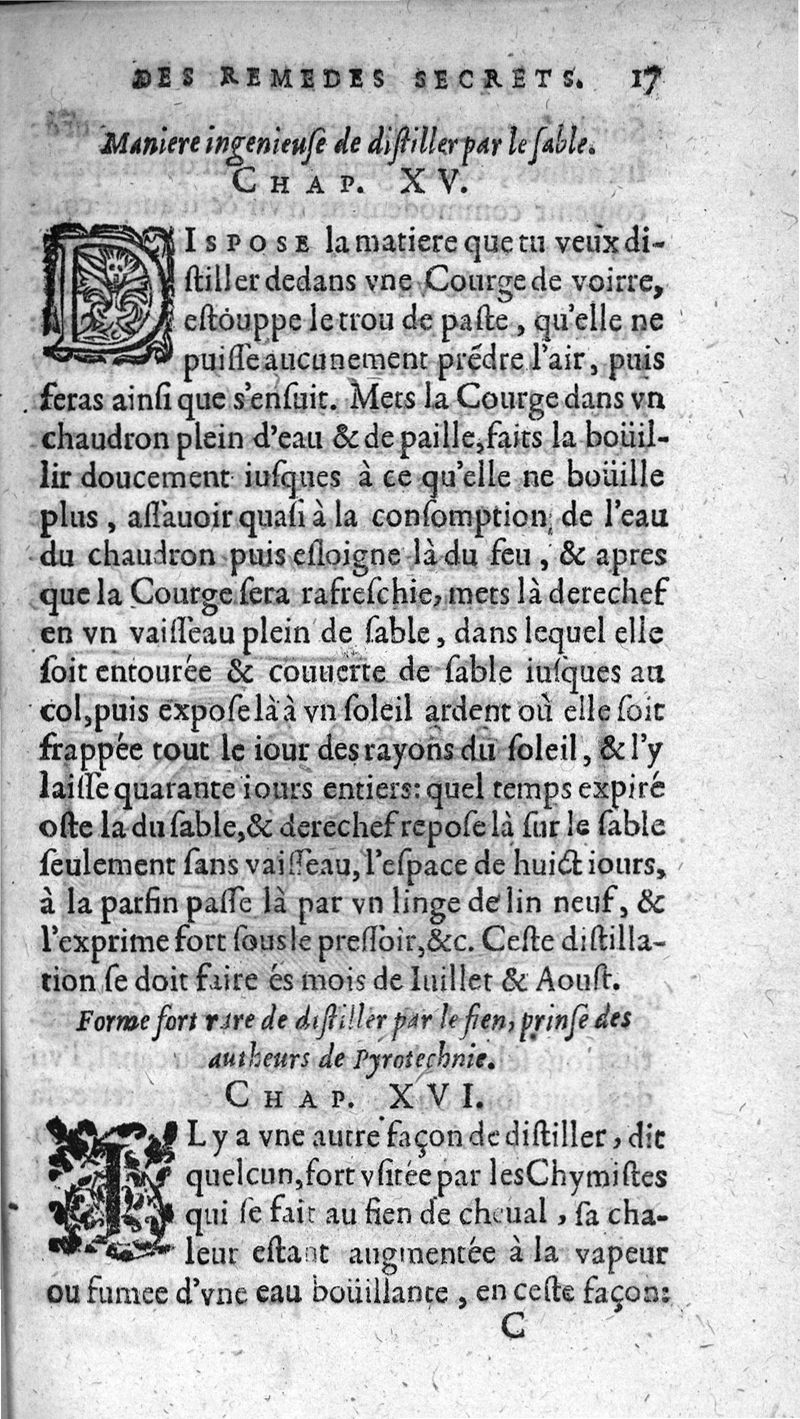 DES REMEDES SECRETS. 17
Maniere ingenieuſe de diſtiller par le ſable.
CHAP. XV.
DISPOSE la matiere que tu veux di-
ſtiller dedans vne Courge de voirre,
eſtouppe le trou de paſte, qu'elle ne
puiſſe aucunement prẽdre l'air, puis
feras ainſi que s'enſuit. Mets la Courge dans vn
chaudron plein d'eau & de paille, faits la boüil-
lir doucement iuſques à ce qu'elle ne boüille
plus, aſſauoir quaſi à la conſomption de l'eau
du chaudron puis eſloigne là du feu, & apres
que la Courge ſera rafreſchie, mets là derechef
en vn vaiſſeau plein de ſable, dans lequel elle
ſoit entourée & couuerte de ſable iuſques au
col, puis expoſe là à vn ſoleil ardent où elle ſoit
frappée tout le iour des rayons du ſoleil, & l'y
laiſſe quarante iours entiers: quel temps expiré
oſte la du ſable, & derechef repoſe là ſur le ſable
ſeulement ſans vaiſſeau, l'eſpace de huict iours,
à la parfin paſſe là par vn linge de lin neuf, &
l'exprime fort ſous le preſſoir, &c. Ceſte diſtilla-
tion ſe doit faire és mois de Iuillet & Aouſt.
Forme fort rare de diſtiller par le fien, prinſe des
autheurs de Pyrotechnie.
CHAP. XVI.
IL y a vne autre façon de diſtiller, dit
quelcun, fort vſitée par les Chymiſtes
qui ſe fait au fien de cheual, ſa cha-
leur eſtant augmentée à la vapeur
ou fumee d'vne eau boüillante, en ceſte façon:
C